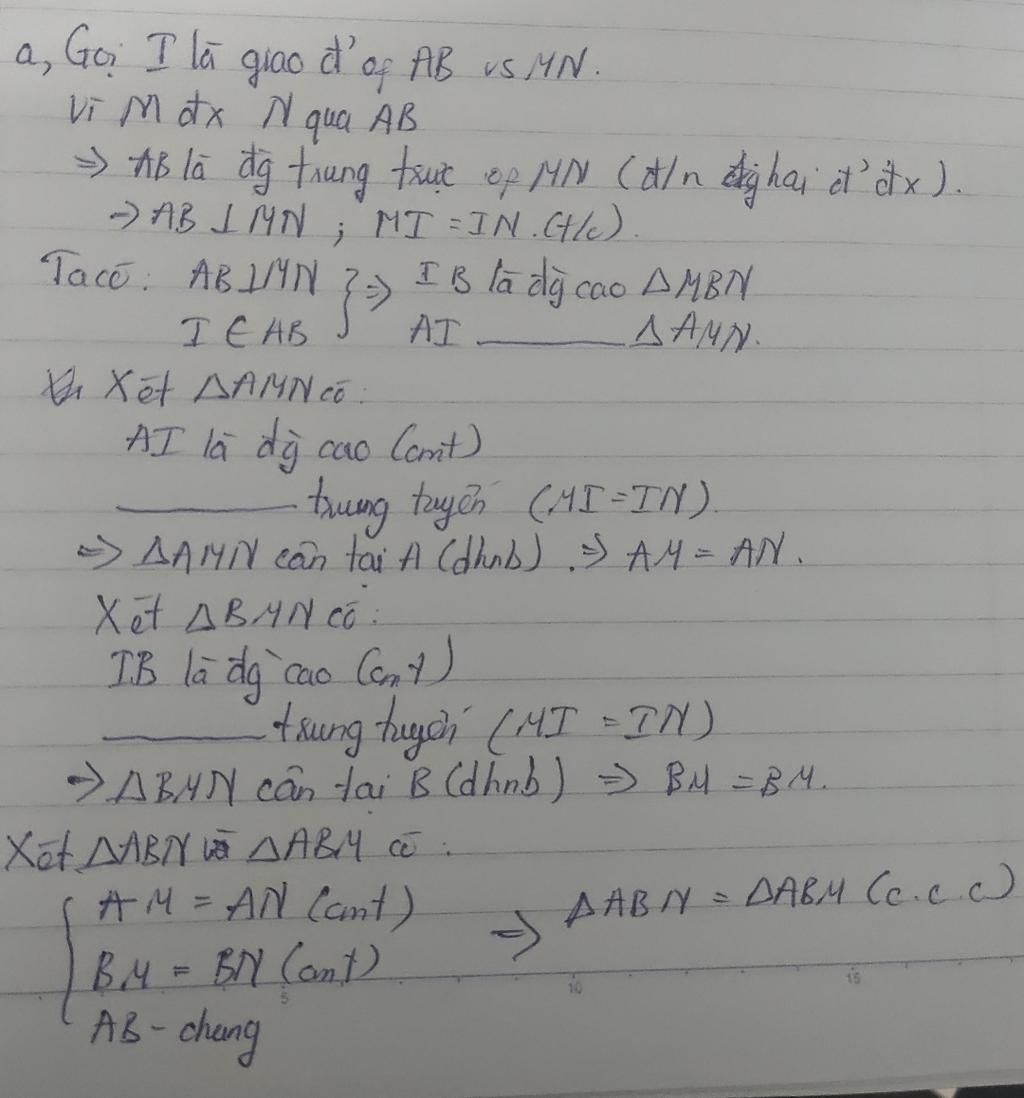 a, Gọi I là giao đ' of AB vs MN.
Vì M đx N qua AB
=> AB là đg trung trực of MN (đ/n hai đ' đx).
-> AB ⊥ MN ; MI = IN (t/c).
Ta có: AB ⊥ MN } => IB là đg cao ΔMBN
I ∈ AB AI ——— ΔAMN.
Xét ΔAMN có:
AI là đg cao (cmt)
——— trung tuyến (MI = IN).
=> ΔAMN cân tại A (dhnb). => AM = AN.
Xét ΔBMN có:
IB là đg cao (cmt)
——— trung tuyến (MI = IN)
=> ΔBMN cân tại B (dhnb) => BM = BM.
Xét ΔABN và ΔABM có:
{ AM = AN (cmt) => ΔABN = ΔABM (c.c.c)
BM = BN (cmt)
AB - chung
5 10 15